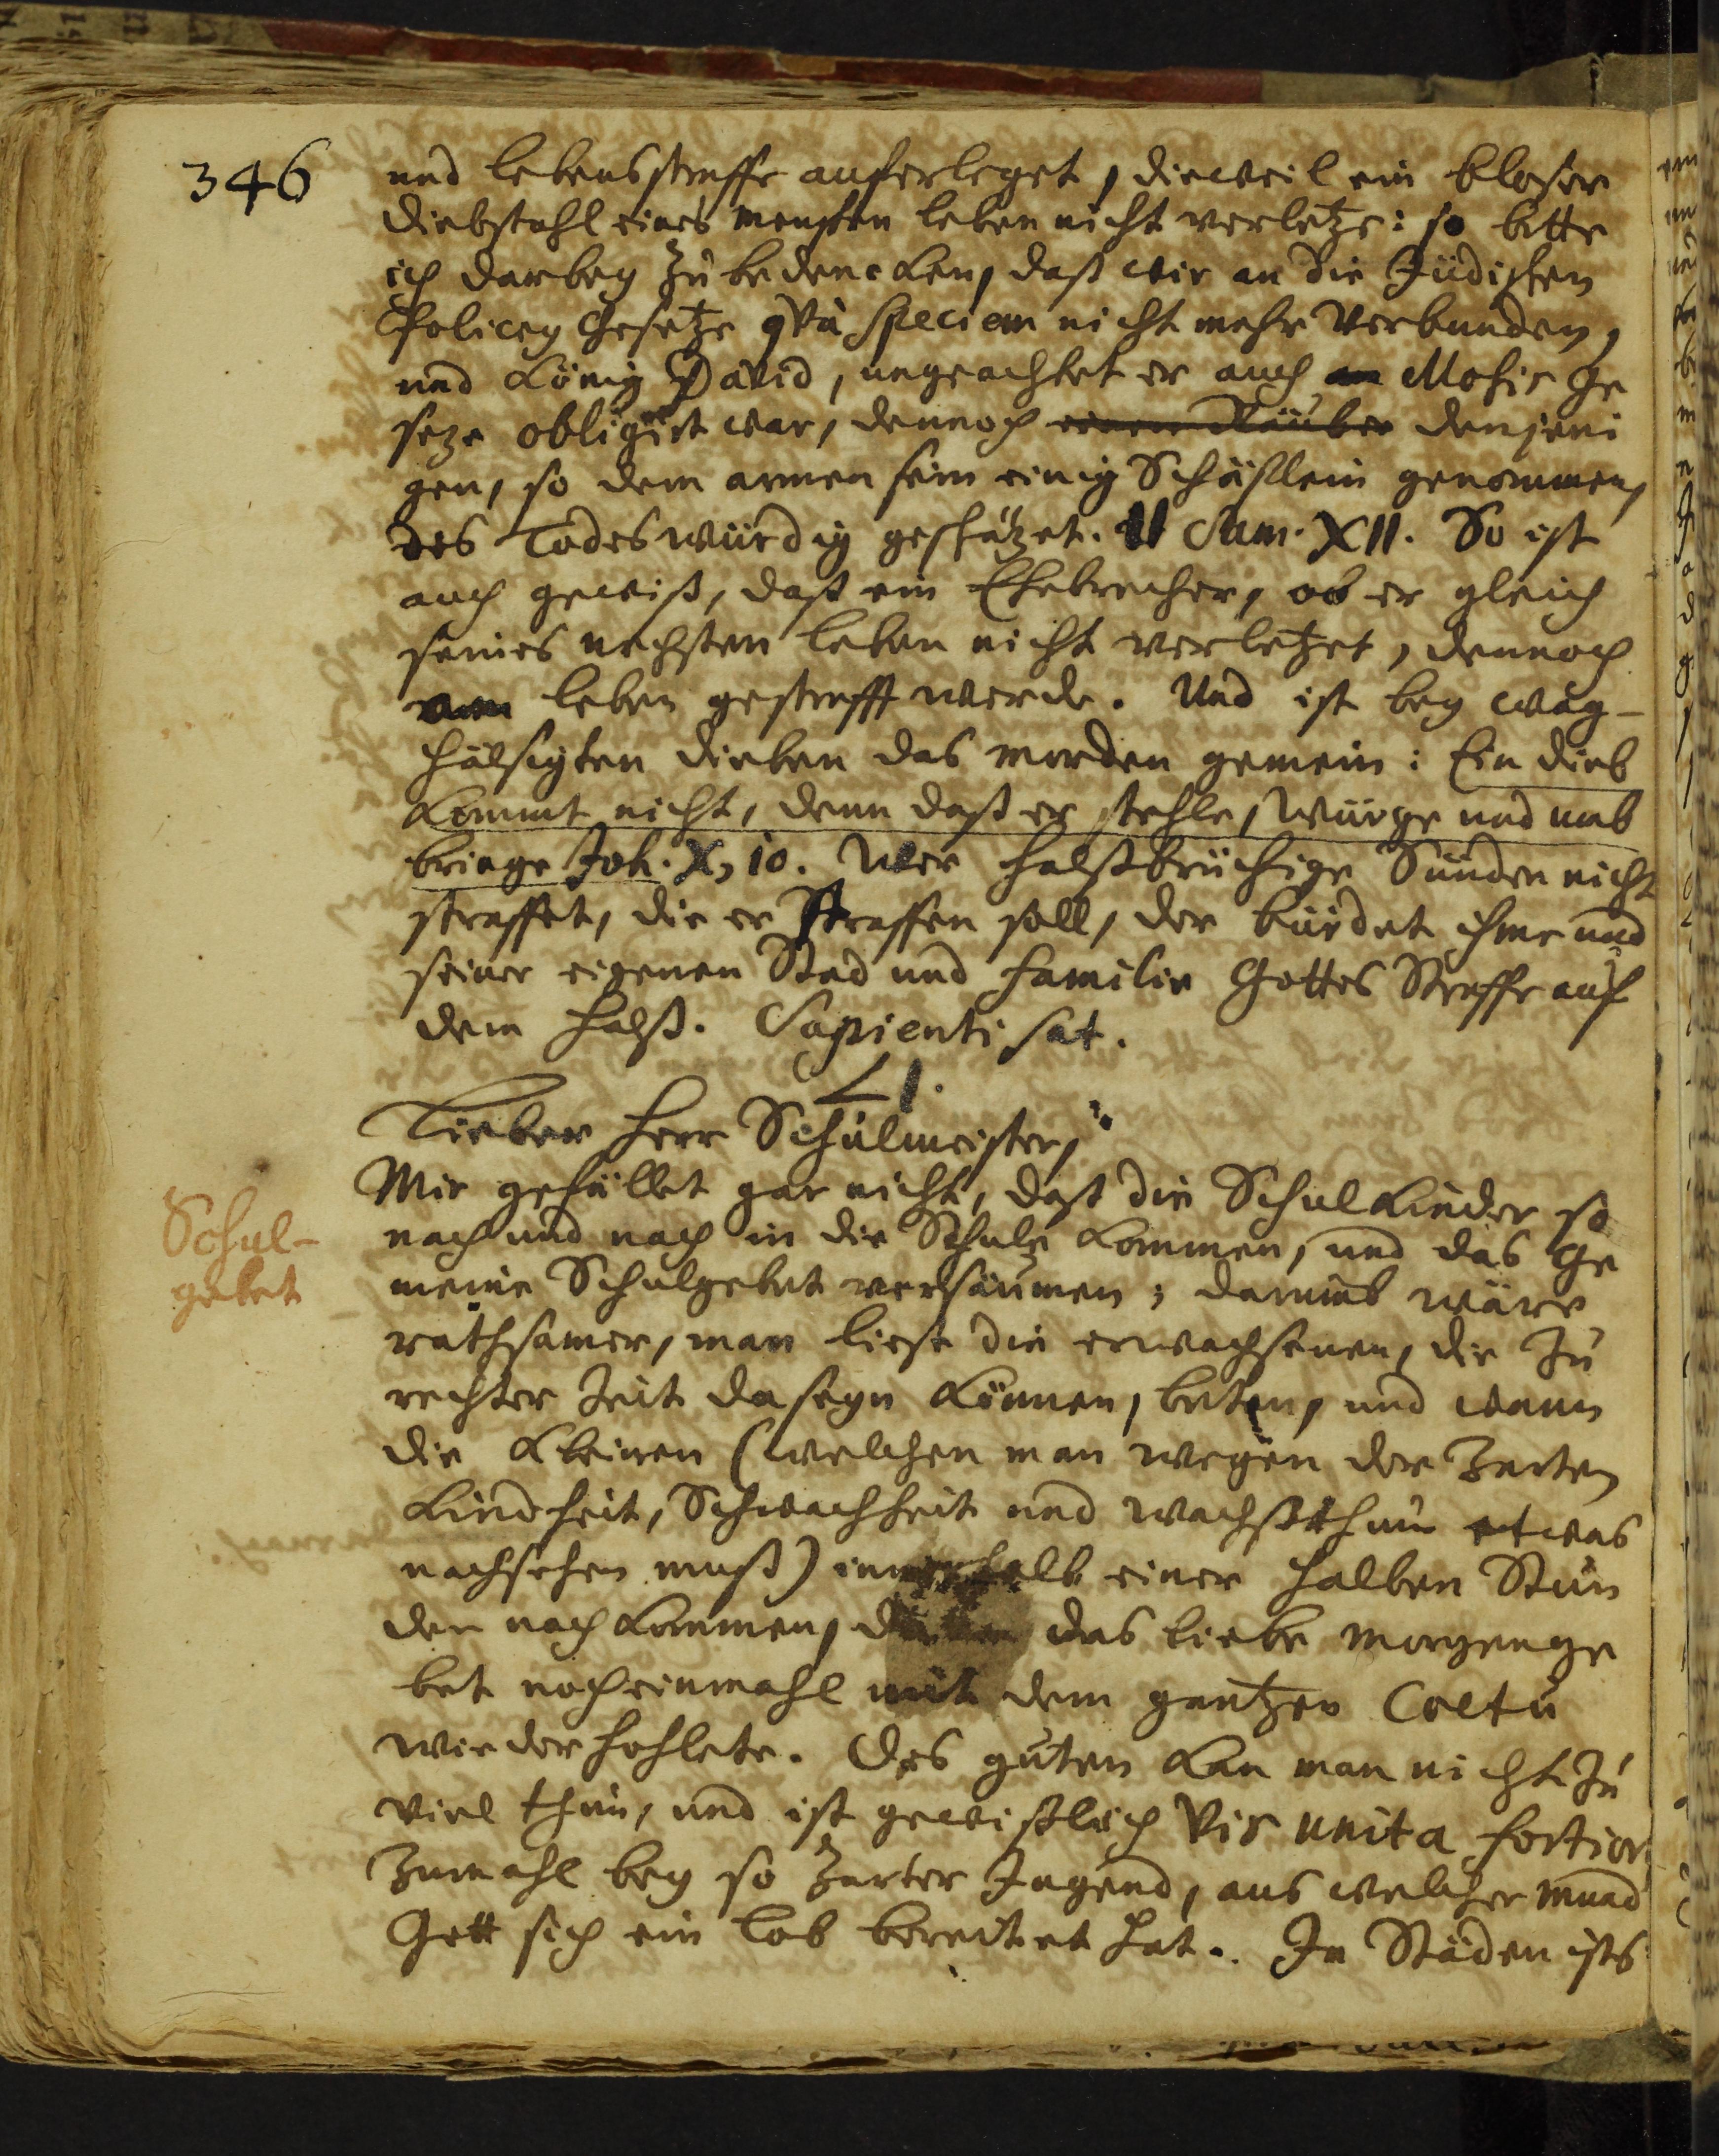 346
und lebensstraffe auferleget, dieweil ein bloser
diebstahl eines menschen leben nicht verletze: so bitte
ich darbey zu bedencken, daß wir an die Jüdischen
Policey Gesetze qvà speciem nicht mehr verbunden,
und König David, ungeachtet er auch an Mosis Ge
seze obligirt war, dennoch einen Räuber denjeni
gen, so dem armen sein einig Schäflein genommen,
des Todes würdig geschätzet. II Sam. XII. So ist
auch gewiß, daß ein Ehebrecher, ob er gleich
seines nechsten leben nicht verletzet, dennoch
am leben gestrafft werde. Und ist bey wag-
hälsigten dieben das morden gemein: Ein dieb
kommt nicht, denn daß er stehle, würge und umb
bringe Joh. X, 10. Wer halßbrüchige Sünden nicht
straffet, die er straffen soll, der bürdet ihme und
seiner eigenen Stad und familie Gottes Straffe auf
dem halß. Sapienti sat.
LI.
Lieber Herr Schulmeister,
Mir gefället gar nicht, daß die Schulkinder so
nach und nach in die Schule kommen, und das Ge
meine Schulgebet versäumen; darumb wäre
rathsamer, man liese die erwachsenen, die zu
rechter Zeit da seyn können, beten, und wann
die kleinen (welchen man wegen der Zarten
Kindheit, Schwachheit und wachsthum etwas
nachsehen muß) innerhalb einer halben Stun
den nach kommen, das liebe morgenge
bet noch einmahl mit dem gantzen Coetu
wiederhohlete. Des guten kan man nicht zu
viel thun, und ist gewißlich Vis unita fortior
Zumahl bey so Zarter Jugend, aus welcher mund
Gott sich ein lob bereitet hat. In Städen ists
Schul-
gebet